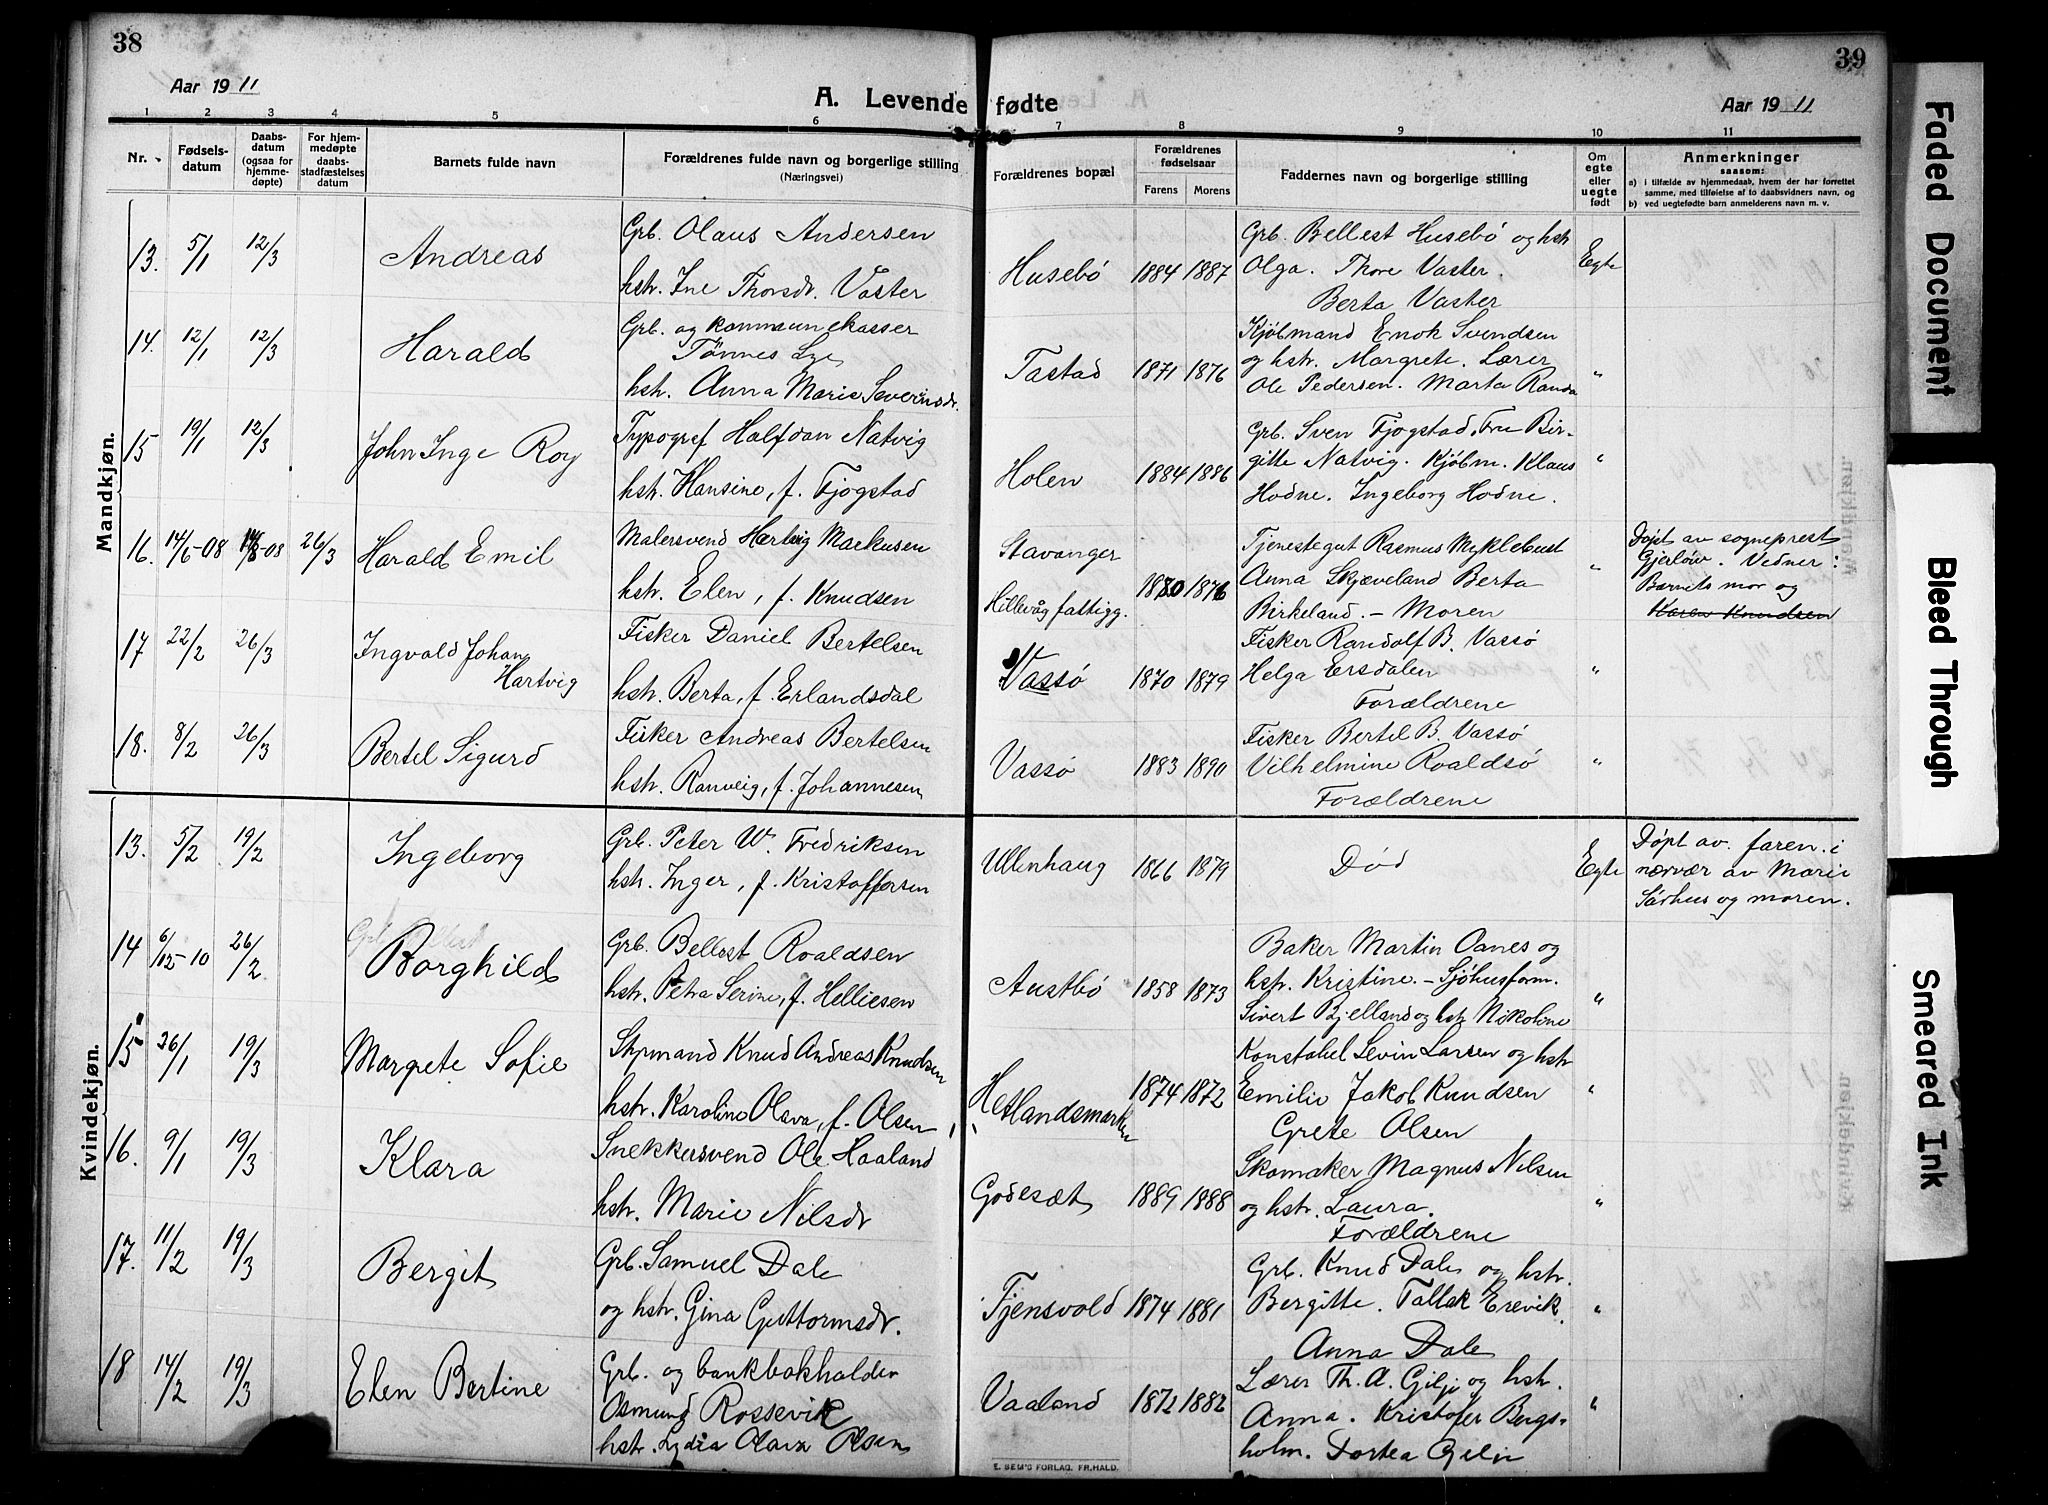 38
39
Aar 19 11
A. Levende fødte
Aar 19 11
1 2 3 4 5 6 7 8 9 10 11
Nr.
Fødselsdatum
Daabsdatum (ogsaa for hjemmedøpte)
For hjemmedøpte daabsstadfæstelses datum
Barnets fulde navn
Forældrenes fulde navn og borgerlige stilling
(Næringsvei)
Forældrenes bopæl
Forældrenes fødselsaar
Farens Morens
Faddernes navn og borgerlige stilling
Om egte eller uegte født
Anmerkninger
saasom:
a) i tilfælde av hjemmedaab, hvem der har forrettet
samme, med tilføielse af to daabsvidners navn, og
b) ved uegtefødte barn anmelderens navn m. v.
Mandkjøn.
13. 5/1 12/3 Andreas
Grb. Olaus Andersen
hstr. Ine Thorsdr. Vaster
Husebö 1884 1887
Grb. Bellest Husebö og hstr
Olga. Thore Vaster.
Berta Vaster
Egte
14. 12/1 12/3 Harald
Grb. og kommunekasser
Tönnes Lye
hstr. Anna Marie Severinsdr.
Tastad 1871 1876
Kjöbmand Enok Svendsen
og hstr. Margrete. Lærer
Ole Pedersen. Marta Randa
"
15 19/1 12/3 John Inge Roy
Typograf Halfdan Natvig
hstr. Hansine, f. Fjogstad
Holen 1884 1886
Grb. Sven Fjogstad. Fru Bir-
gitte Natvig. Kjöbm. Klaus
Hodne. Ingeborg Hodne.
"
16. 14/5-08 26/3 Harald Emil
Malersvend Hartvig Markusen
hstr. Elen, f. Knudsen
Stavanger
Hillevåg fattigg.
1880 1876
Tjenestegut Rasmus Myklebust
Anna Skjæveland Berta
Birkeland. - Moren
"
Döpt av sogneprest
Gjerlöw. Vidner:
Barnets mor og
Karen Knudsen
17 22/2 26/3 Ingvald Johan
Hartvig
Fisker Daniel Bertelsen
hstr. Berta, f. Erlandsdal
Vassö 1870 1879
Fisker Randolf B. Vassö
Helga Ersdalen
Forældrene
"
18. 8/2 26/3 Bertel Sigurd
Fisker Andreas Bertelsen
hstr. Ranveig, f. Johannesen
Vassö 1883 1890
Fisker Bertel B. Vassö
Vilhelmine Roaldsö
Forældrene
"
Kvindekjøn.
13. 5/2 19/2 Ingeborg
Grb. Peter W. Fredriksen
hstr. Inger, f. Kristoffersen
Ullenhaug 1866 1879
Död
Egte
Döpt av faren i
nærvær av Marie
Sörhus og moren.
14 6/12-10 26/2 Borghild
Grb. Bellest Roaldsen
hstr. Petra Serine, f. Helliesen
Austbö 1858 1873
Baker Martin Oanes og
hstr. Kristine. - Sjöhusform.
Sivert Bjelland og hstr Nikoline
"
15 26/1 19/3 Margrete Sofie
Styrmand Knud Andreas Knudsen
hstr. Karoline Olava, f. Olsen
Hetlandsmarken 1874 1872
Konstabel Sevin Larsen og hstr
Emilie Jakob Knudsen
Grete Olsen
"
16. 9/1 19/3 Klara
Snekkersvend Ole Haaland
hstr. Marie Nilsdr
Godesæt 1889 1888
Skomaker Magnus Nilsen
og hstr. Laura.
Forældrene
"
17. 11/2 19/3 Bergit
Grb. Samuel Dale
og hstr. Gina Guttormsdr.
Tjensvold 1874 1881
Grb. Knud Dale og hstr.
Bergitte. Tallak Erevik.
Anna Dale
"
18 14/2 19/3 Elen Bertine
Grb. og bankbokholder
Osmund Rossevik
hstr. Lydia Olava Olsen
Vaaland 1872 1882
Lærer Th. A. Gilje og hstr.
Anna. Kristofer Bergs-
holm. Dortea Gilje
"
E. SEM'S FORLAG. FR.HALD.
Faded Document
Bleed Through
Smeared Ink